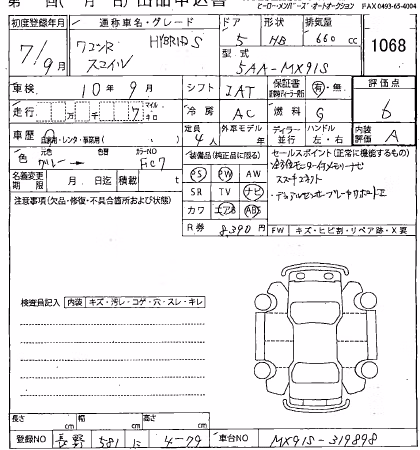 ヒーロー・メンバーズ・オートオークション FAX 0493-65-4004
初度登録年月 通称車名・グレード ドア 形状 排気量
7/9月 ワゴンR スマイル HYBRID S 5 HB 660 cc 1068
型式
5AA-MX91S
車検 10年9月 シフト IAT 保証書 有・無 評価点
走行 万 千 7 マイル キロ 冷房 AC 燃料 G 6
車歴 自家用・レンタ・事業用( ) 定員 4人 外車モデル 年 ディーラー 並行 ハンドル 左・右 内装評価 A
色 元色 グレー → 色 カラーNO 装備品(純正品に限る) セールスポイント(正常に機能するもの)
名義変更期限 月 日迄 積載 t PS PW AW
SR TV ナビ
注意事項(欠品・修復・不具合箇所および状態) カワ エアB ABS
R券 8,390円 FW キズ・ヒビ割・リペア跡・X要
検査員記入 内装 キズ・汚レ・コゲ・穴・スレ・キレ
長さ cm 幅 cm 高さ cm
登録NO 長野 581 に 4-79 車台NO MX91S-319898